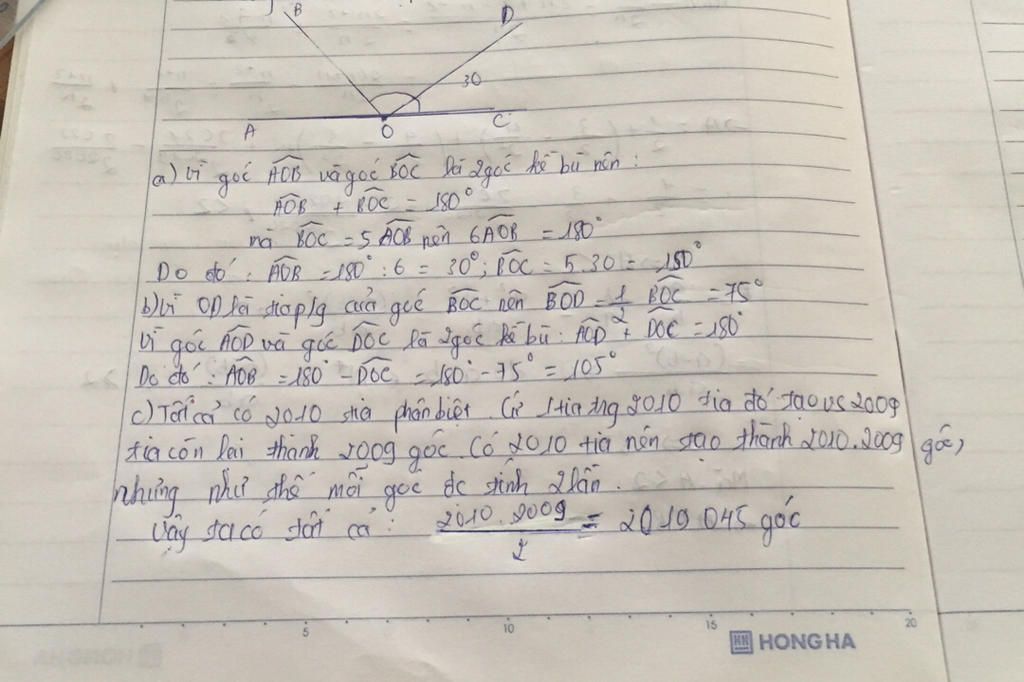 B
D
30
A
O
C
a) Vì góc AOB và góc BOC là 2 góc kề bù nên :
AOB + BOC = 180°
mà BOC = 5 AOB nên 6AOB = 180°
Do đó : AOB = 180° : 6 = 30° ; BOC = 5.30 = 150°
b) Vì OD là tia p/g của góc BOC nên BOD = 1/2 BOC = 75°
Vì góc AOD và góc DOC là 2 góc kề bù : AOD + DOC = 180°
Do đó : AOB = 180° - DOC = 180° - 75° = 105°
c) Tất cả có 2010 tia phân biệt. Cứ 1 tia trg 2010 tia đó tạo vs 2009
tia còn lại thành 2009 góc. Có 2010 tia nên tạo thành 2010.2009 góc,
nhưng như thế mỗi góc đc tính 2 lần.
Vậy ta có tất cả : 2010.2009/2 = 2019045 góc
5 10 15 20
HONG HA